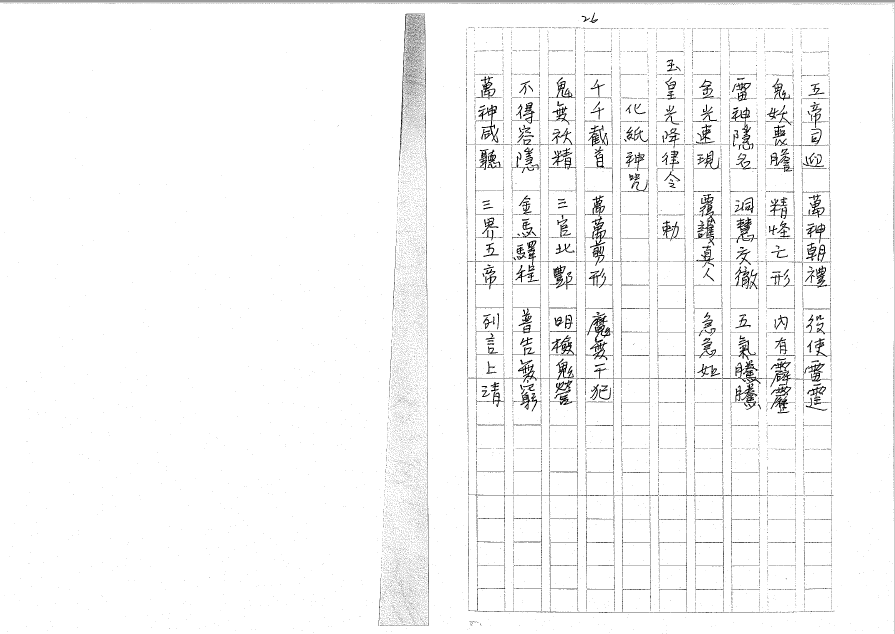 26
五帝司迎 萬神朝禮 役使雷霆
鬼妖喪膽 精怪亡形 內有霹靂
雷神隱名 洞慧交徹 五氣騰騰
金光速現 覆護真人 急急如
玉皇光降律令 勅
化紙神咒
千千截首 萬萬剪形 魔無干犯
鬼無袄精 三官北酆 明檢鬼營
不得容隱 金馬驛程 普告無窮
萬神咸聽 三界五帝 列言上清